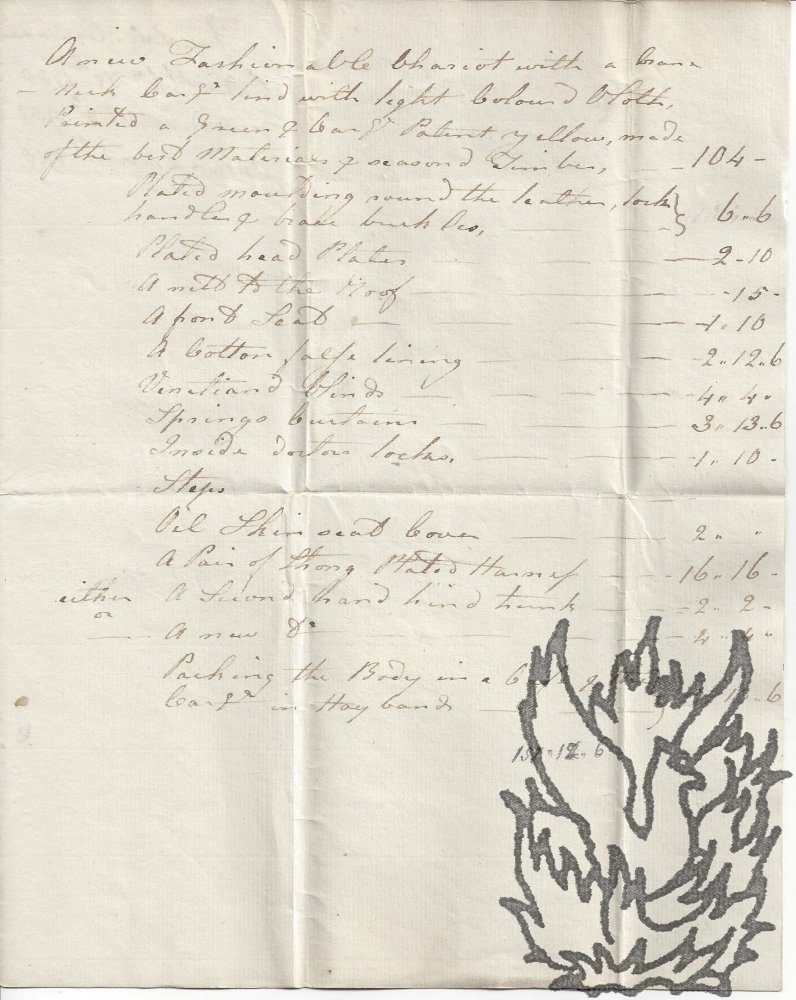 A new Fashionable Chariot with a Crane
- Neck Carge lind with light Colourd Cloth,
Painted a Green & Carge Patent yellow, made
of the best Materials & seasond Timber, - - 104 -
Plated moulding round the leather, lock
handles & brace buckles, 6 " 6
Plated head Plates - 2 - 10
A nett to the Roof - 15 -
A front Seat - 1 " 10
A Cotton false lining - 2 " 12 " 6
Venetiand blinds - 4 " 4 "
Springs Curtains - 3 " 13 " 6
Inside doctors locks, - 1 " 10 -
Steps
Oil Skin seat Cover 2 " "
A Pair of Strong Plated Harness - 16 " 16 -
either A Second hand hind trunk - 2 " 2 -
or
A new Do - 4 " 4 "
Packing the Body in a & 6
Carge in Hay bands
151 " 12 " 6